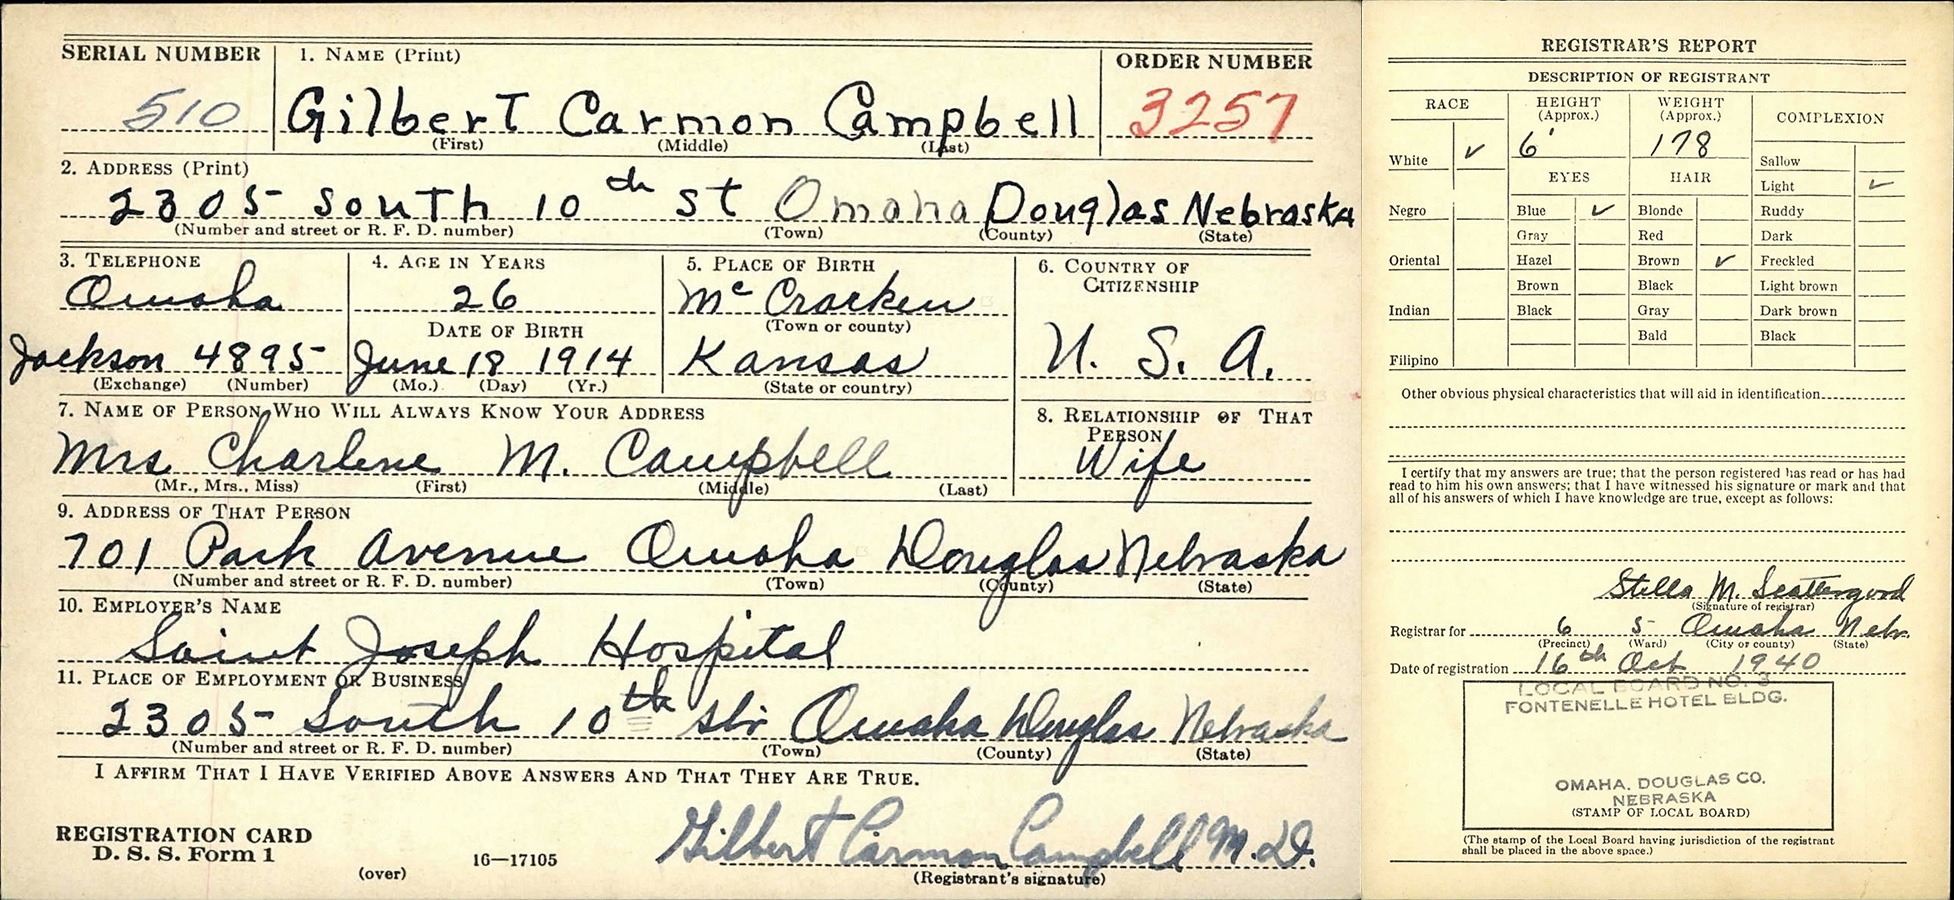 SERIAL NUMBER 1. NAME (Print) ORDER NUMBER
510 Gilbert Carmon Campbell 3257
(First) (Middle) (Last)
2. ADDRESS (Print)
2305 South 10th St Omaha Douglas Nebraska
(Number and street or R. F. D. number) (Town) (County) (State)
3. TELEPHONE 4. AGE IN YEARS 5. PLACE OF BIRTH 6. COUNTRY OF CITIZENSHIP
Omaha 26 McCracken
(Town or county)
DATE OF BIRTH
Jackson 4895 June 18 1914 Kansas U. S. A.
(Exchange) (Number) (Mo.) (Day) (Yr.) (State or country)
7. NAME OF PERSON WHO WILL ALWAYS KNOW YOUR ADDRESS 8. RELATIONSHIP OF THAT PERSON
Mrs Charlene M. Campbell Wife
(Mr., Mrs., Miss) (First) (Middle) (Last)
9. ADDRESS OF THAT PERSON
701 Park Avenue Omaha Douglas Nebraska
(Number and street or R. F. D. number) (Town) (County) (State)
10. EMPLOYER'S NAME
Saint Joseph Hospital
11. PLACE OF EMPLOYMENT OR BUSINESS
2305 South 10th Str Omaha Douglas Nebraska
(Number and street or R. F. D. number) (Town) (County) (State)
I AFFIRM THAT I HAVE VERIFIED ABOVE ANSWERS AND THAT THEY ARE TRUE.
REGISTRATION CARD
D. S. S. Form 1 16—17105 Gilbert Carmon Campbell M.D.
(over) (Registrant's signature)
REGISTRAR'S REPORT
DESCRIPTION OF REGISTRANT
RACE HEIGHT (Approx.) WEIGHT (Approx.) COMPLEXION
White ✓ 6' 178 Sallow
EYES HAIR Light ✓
Negro Blue ✓ Blonde Ruddy
Gray Red Dark
Oriental Hazel Brown ✓ Freckled
Brown Black Light brown
Indian Black Gray Dark brown
Bald Black
Filipino
Other obvious physical characteristics that will aid in identification
I certify that my answers are true; that the person registered has read or has had
read to him his own answers; that I have witnessed his signature or mark and that
all of his answers of which I have knowledge are true, except as follows:
Stella M. Scattergood
(Signature of registrar)
Registrar for 6 5 Omaha Nebr.
(Precinct) (Ward) (City or county) (State)
Date of registration 16th Oct 1940
LOCAL BOARD NO. 3
FONTENELLE HOTEL BLDG.
OMAHA, DOUGLAS CO.
NEBRASKA
(STAMP OF LOCAL BOARD)
(The stamp of the Local Board having jurisdiction of the registrant
shall be placed in the above space.)